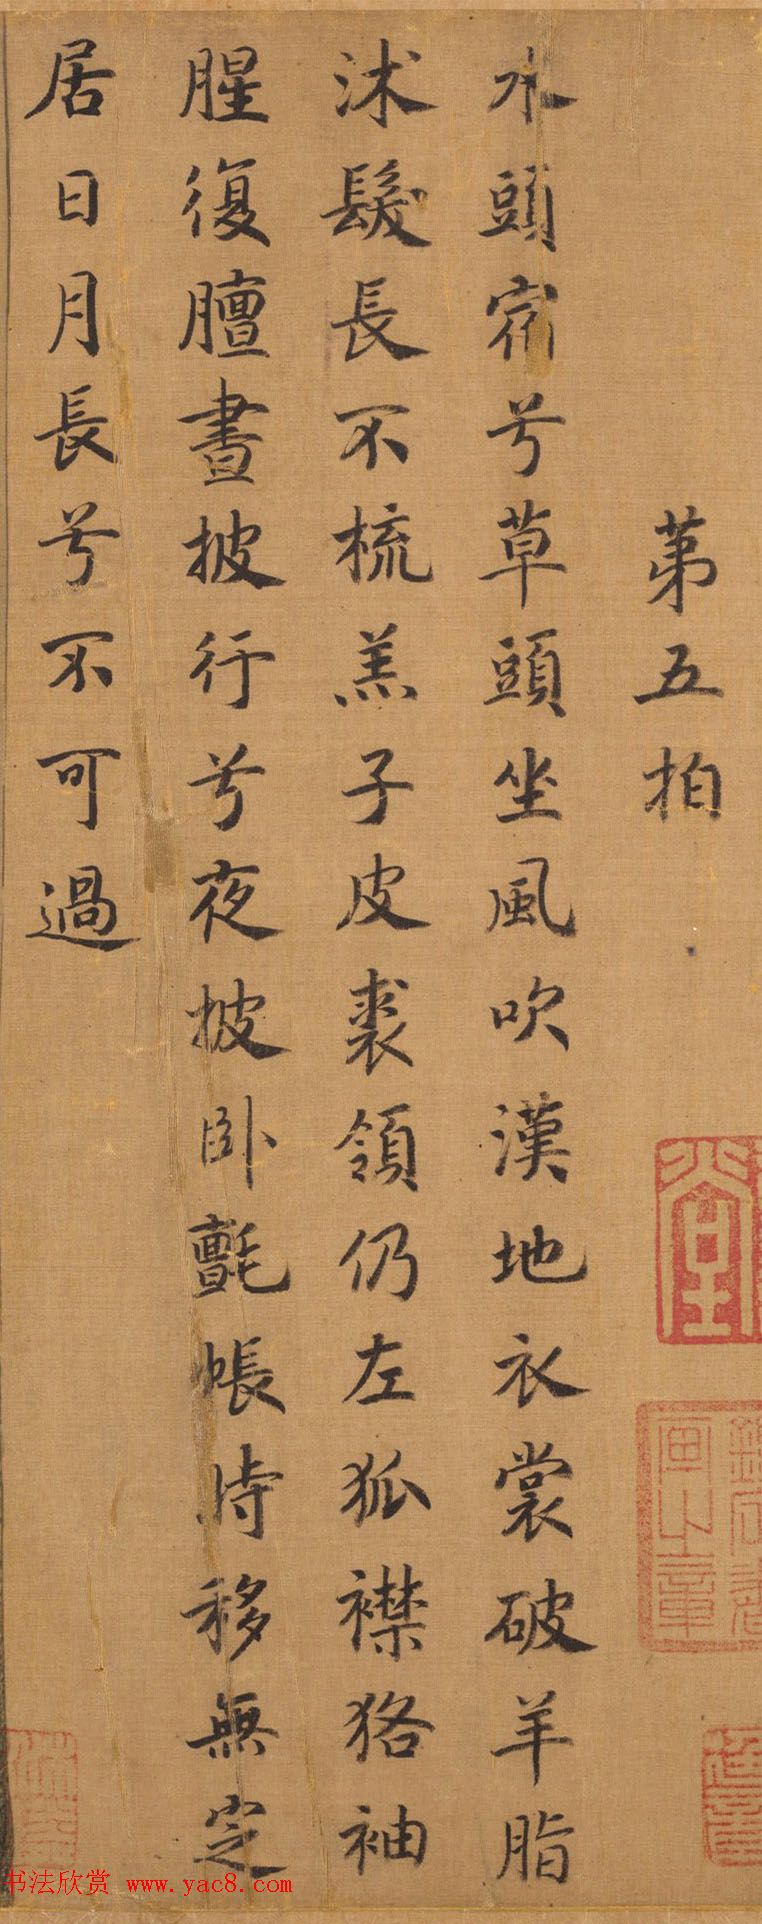 第五拍
水頭宿兮草頭坐風吹漢地衣裳破羊脂
沐髮長不梳羔子皮裘領仍左狐襟狢袖
腥復膻晝披行兮夜披卧氈帳時移無定
居日月長兮不可過
堂
書法欣赏 www.yac8.com